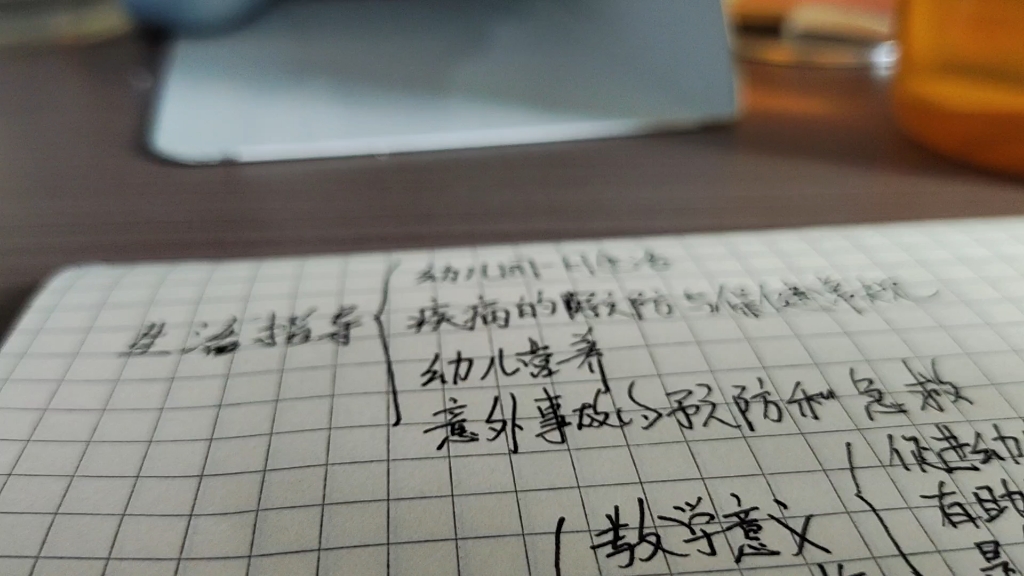 幼儿园一日生活
疾病的预防与
生活指导
幼儿营养
意外事故的预防和急救
促进幼
教学意义
有助